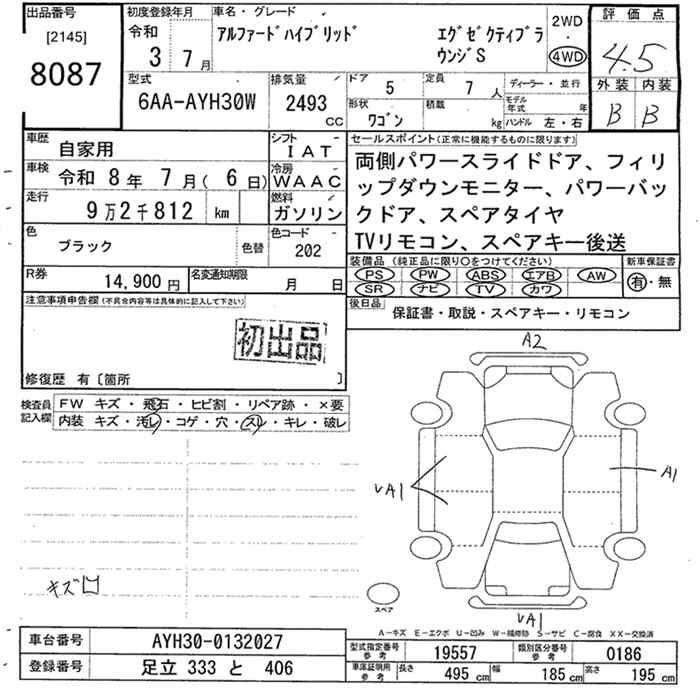 出品番号
[2145]
8087
初度登録年月
令和
3 7月
車名・グレード
アルファードハイブリッド
エグゼクティブラ
ウンジS
2WD
・
4WD
評価点
4.5
外装 内装
B B
型式
6AA-AYH30W
排気量
2493
CC
ドア
5
定員
7
人
形状
ワゴン
積載
kg
ディーラー・並行
モデル年式 年
ハンドル 左・右
車歴
自家用
シフト
IAT
車検
令和 8年 7月( 6日)
冷房
WAAC
走行
9万2千812 km
燃料
ガソリン
色
ブラック
色替
色コード
202
R券
14,900円
名変通知期限
月 日
セールスポイント(正常に機能するものに限ります)
両側パワースライドドア、フィリ
ップダウンモニター、パワーバッ
クドア、スペアタイヤ
TVリモコン、スペアキー後送
装備品 (純正品に限り○をつけてください)
PS PW ABS エアB AW
SR ナビ TV カワ
新車保証書
有・無
後日品
保証書・取説・スペアキー・リモコン
注意事項申告欄(不具合内容等は具体的に記入して下さい)
初出品
修復歴 有〔箇所 〕
検査員
記入欄
FW キズ・飛石・ヒビ割・リペア跡・×要
内装 キズ・汚レ・コゲ・穴・スレ・キレ・破レ
A2
VA1
A1
キズ
スペア
VA1
A-キズ E-エクボ U-凹み W-補修跡 S-サビ C-腐食 XX-交換済
車台番号
AYH30-0132027
登録番号
足立 333 と 406
型式指定番号
参考
19557
類別区分番号
参考
0186
車庫証明用
参考
長さ
495 cm
幅
185 cm
高さ
195 cm